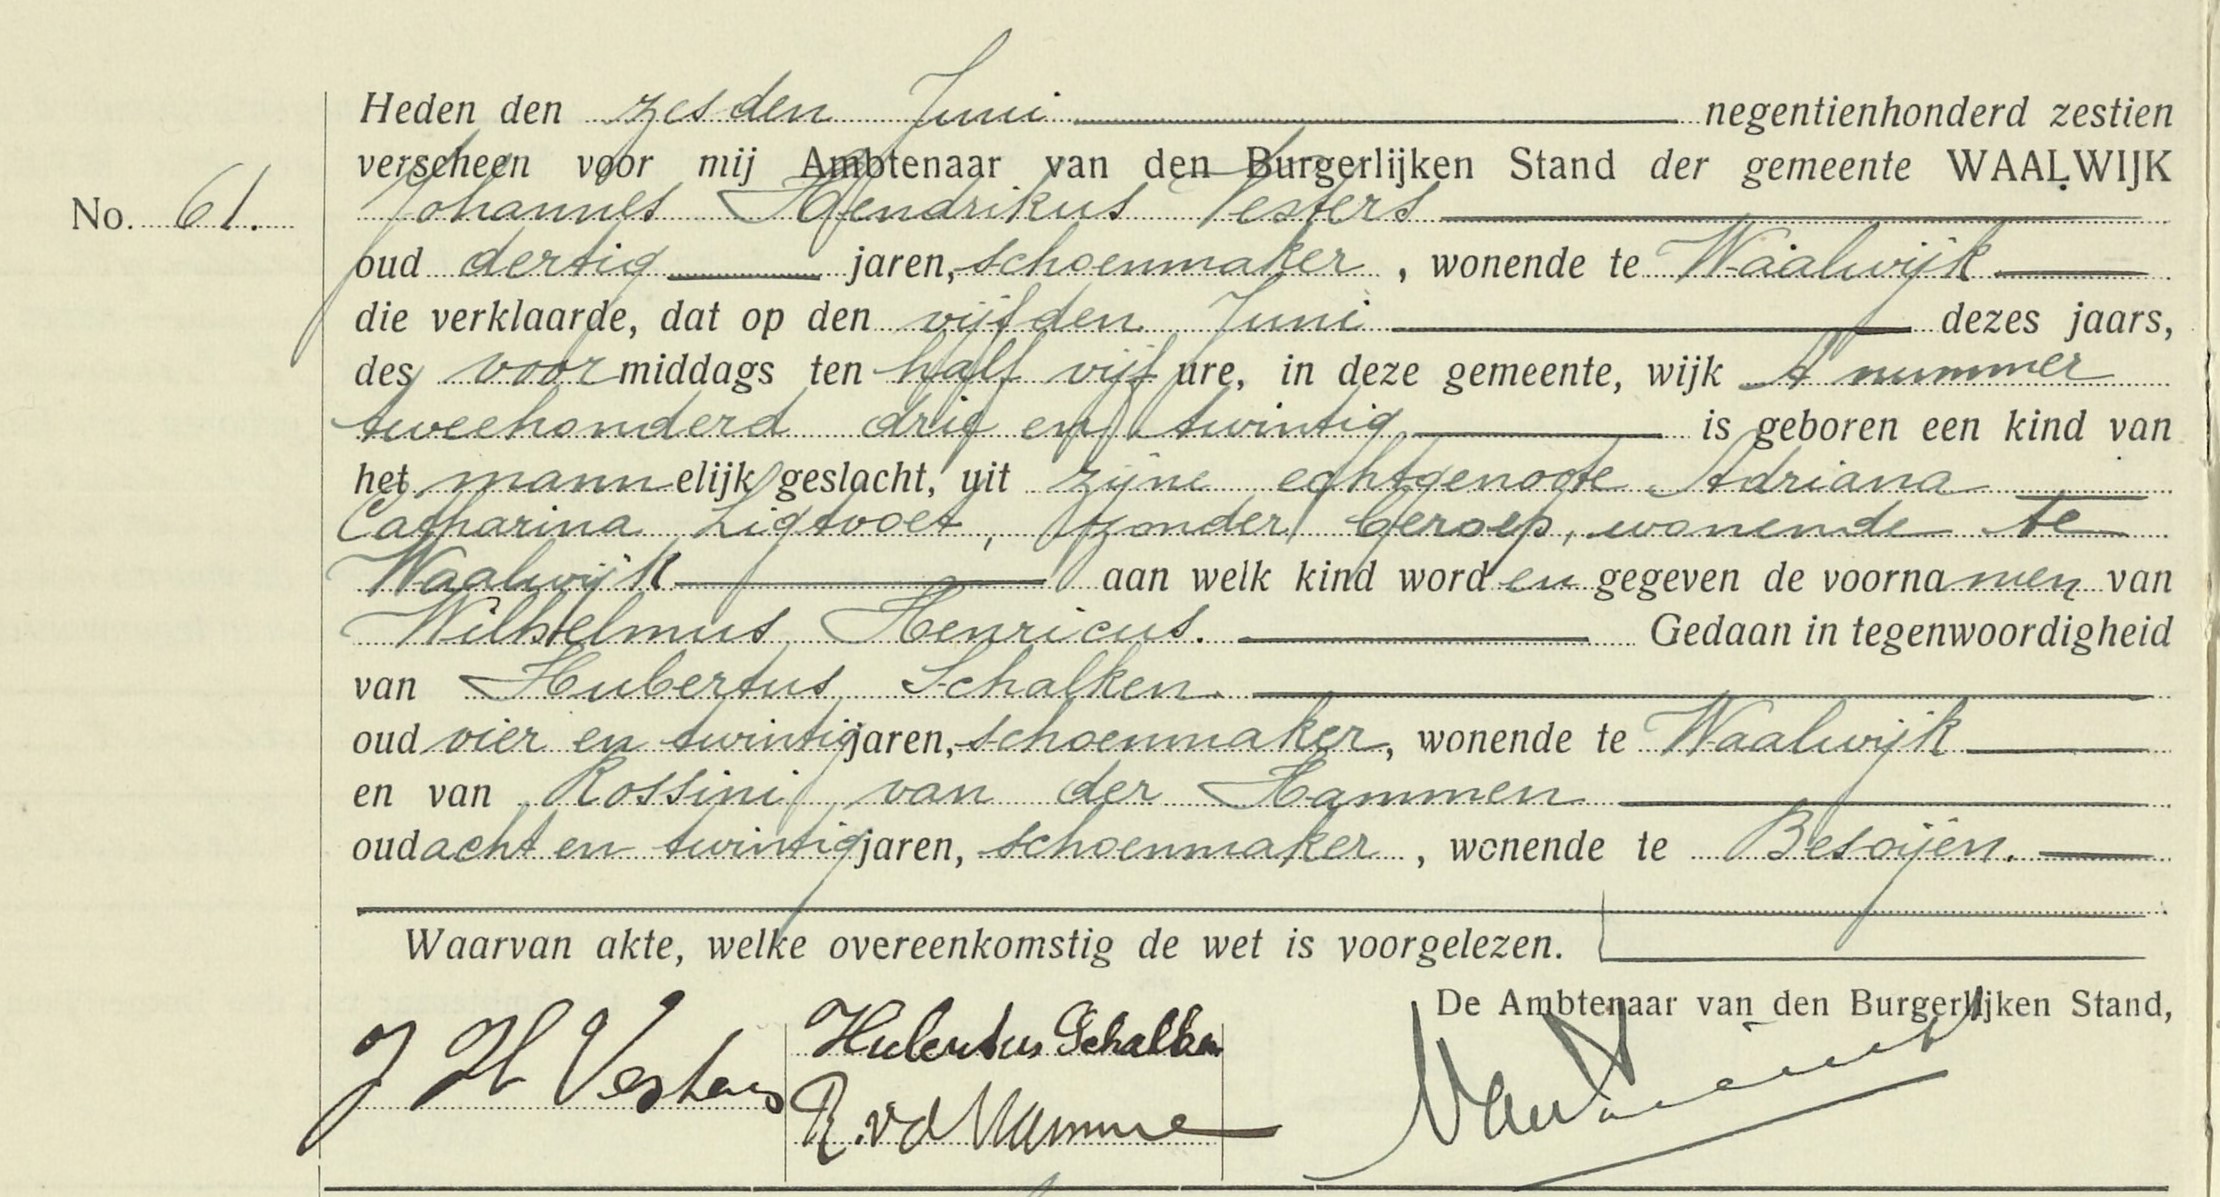 Heden den zesden Juni negentienhonderd zestien
verscheen voor mij Ambtenaar van den Burgerlijken Stand der gemeente WAALWIJK
No. 61.
Johannes Hendrikus Vesters
oud dertig jaren, schoenmaker, wonende te Waalwijk
die verklaarde, dat op den vijfden Juni dezes jaars,
des voormiddags ten half vijf ure, in deze gemeente, wijk A nummer
tweehonderd drie en twintig is geboren een kind van
het mannelijk geslacht, uit zijne echtgenoote Adriana
Catharina Ligtvoet, zonder beroep, wonende te
Waalwijk aan welk kind worden gegeven de voornamen van
Wilhelmus Henricus. Gedaan in tegenwoordigheid
van Hubertus Schalken.
oud vier en twintig jaren, schoenmaker, wonende te Waalwijk
en van Rossini van der Hammen
oud acht en twintig jaren, schoenmaker, wonende te Besoijen.
Waarvan akte, welke overeenkomstig de wet is voorgelezen.
De Ambtenaar van den Burgerlijken Stand,
J H Vesters
Hubertus Schalken
R. vd Hamme